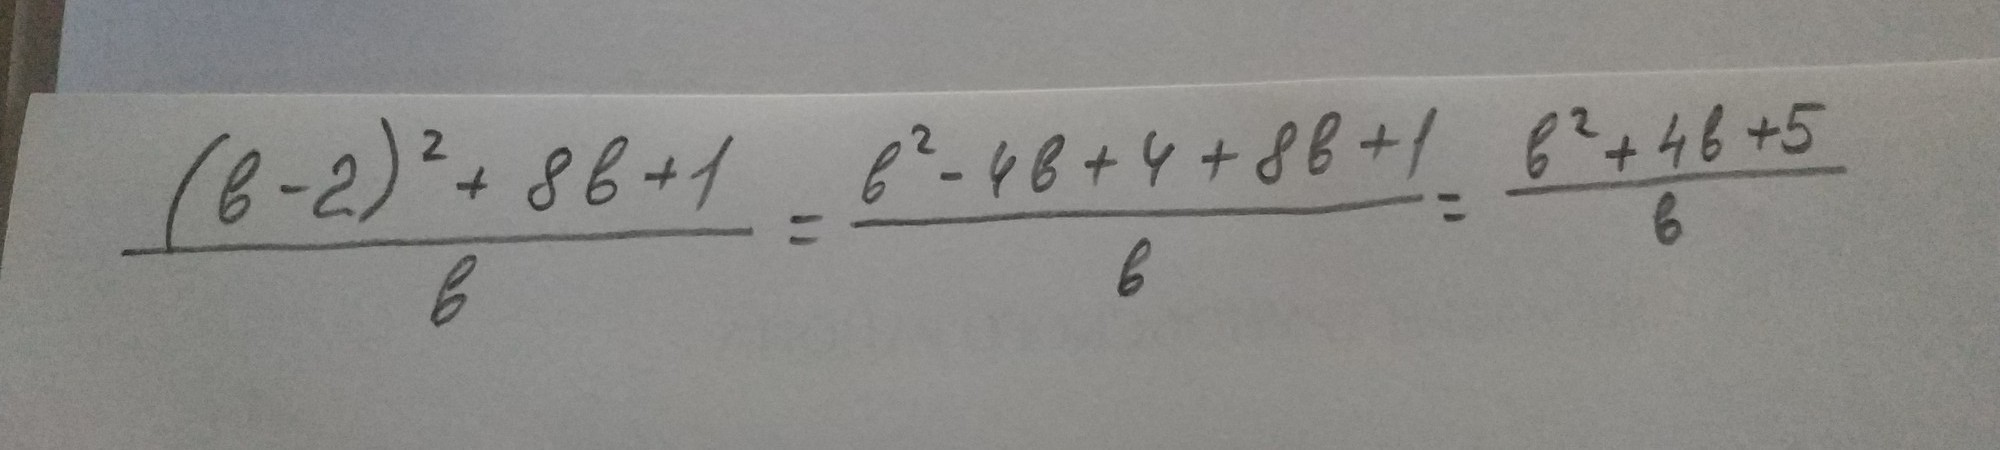 (в-2)² + 8в+1 / в = в² - 4в + 4 + 8в + 1 / в = в² + 4в + 5 / в